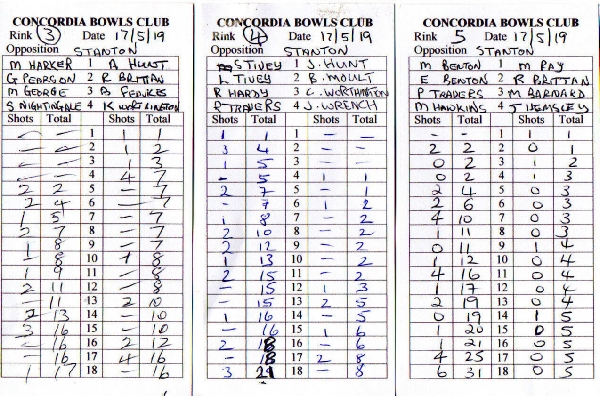 CONCORDIA BOWLS CLUB
Rink 3 Date 17/5/19
Opposition STANTON
M HARKER 1 A HUNT
G PEARSON 2 R BRITTAN
M GEORGE 3 B FEWKES
S NIGHTINGALE 4 K WORTHINGTON
Shots Total Shots Total
– – 1 1 1
– – 2 1 2
– – 3 1 3
– – 4 4 7
2 2 5 – 7
2 4 6 – 7
1 5 7 – 7
2 7 8 – 7
1 8 9 – 7
– 8 10 1 8
1 9 11 – 8
2 11 12 – 8
– 11 13 2 10
2 13 14 – 10
3 16 15 – 10
– 16 16 2 12
– 16 17 4 16
1 17 18 – 16
CONCORDIA BOWLS CLUB
Rink 4 Date 17/5/19
Opposition STANTON
S TIVEY 1 J. HUNT
L TIVEY 2 B. MOULT
R HARDY 3 C. WORTHINGTON
R TRAVERS 4 J. WRENCH
Shots Total Shots Total
1 1 1 – –
3 4 2 – –
1 5 3 – –
– 5 4 1 1
2 7 5 – 1
– 7 6 1 2
1 8 7 – 2
2 10 8 – 2
2 12 9 – 2
1 13 10 – 2
2 15 11 – 2
– 15 12 1 3
– 15 13 2 5
1 16 14 – 5
– 16 15 1 6
2 18 16 – 6
– 18 17 2 8
3 21 18 – 8
CONCORDIA BOWLS CLUB
Rink 5 Date 17/5/19
Opposition STANTON
M BENTON 1 M RAY
E BENTON 2 R BRITTAN
P TRAVERS 3 M BARNARD
M HAWKINS 4 J HEMSLEY
Shots Total Shots Total
– – 1 1 1
2 2 2 0 1
0 2 3 1 2
0 2 4 1 3
2 4 5 0 3
2 6 6 0 3
4 10 7 0 3
1 11 8 0 3
0 11 9 1 4
1 12 10 0 4
4 16 11 0 4
1 17 12 0 4
2 19 13 0 4
0 19 14 1 5
1 20 15 0 5
1 21 16 0 5
4 25 17 0 5
6 31 18 0 5